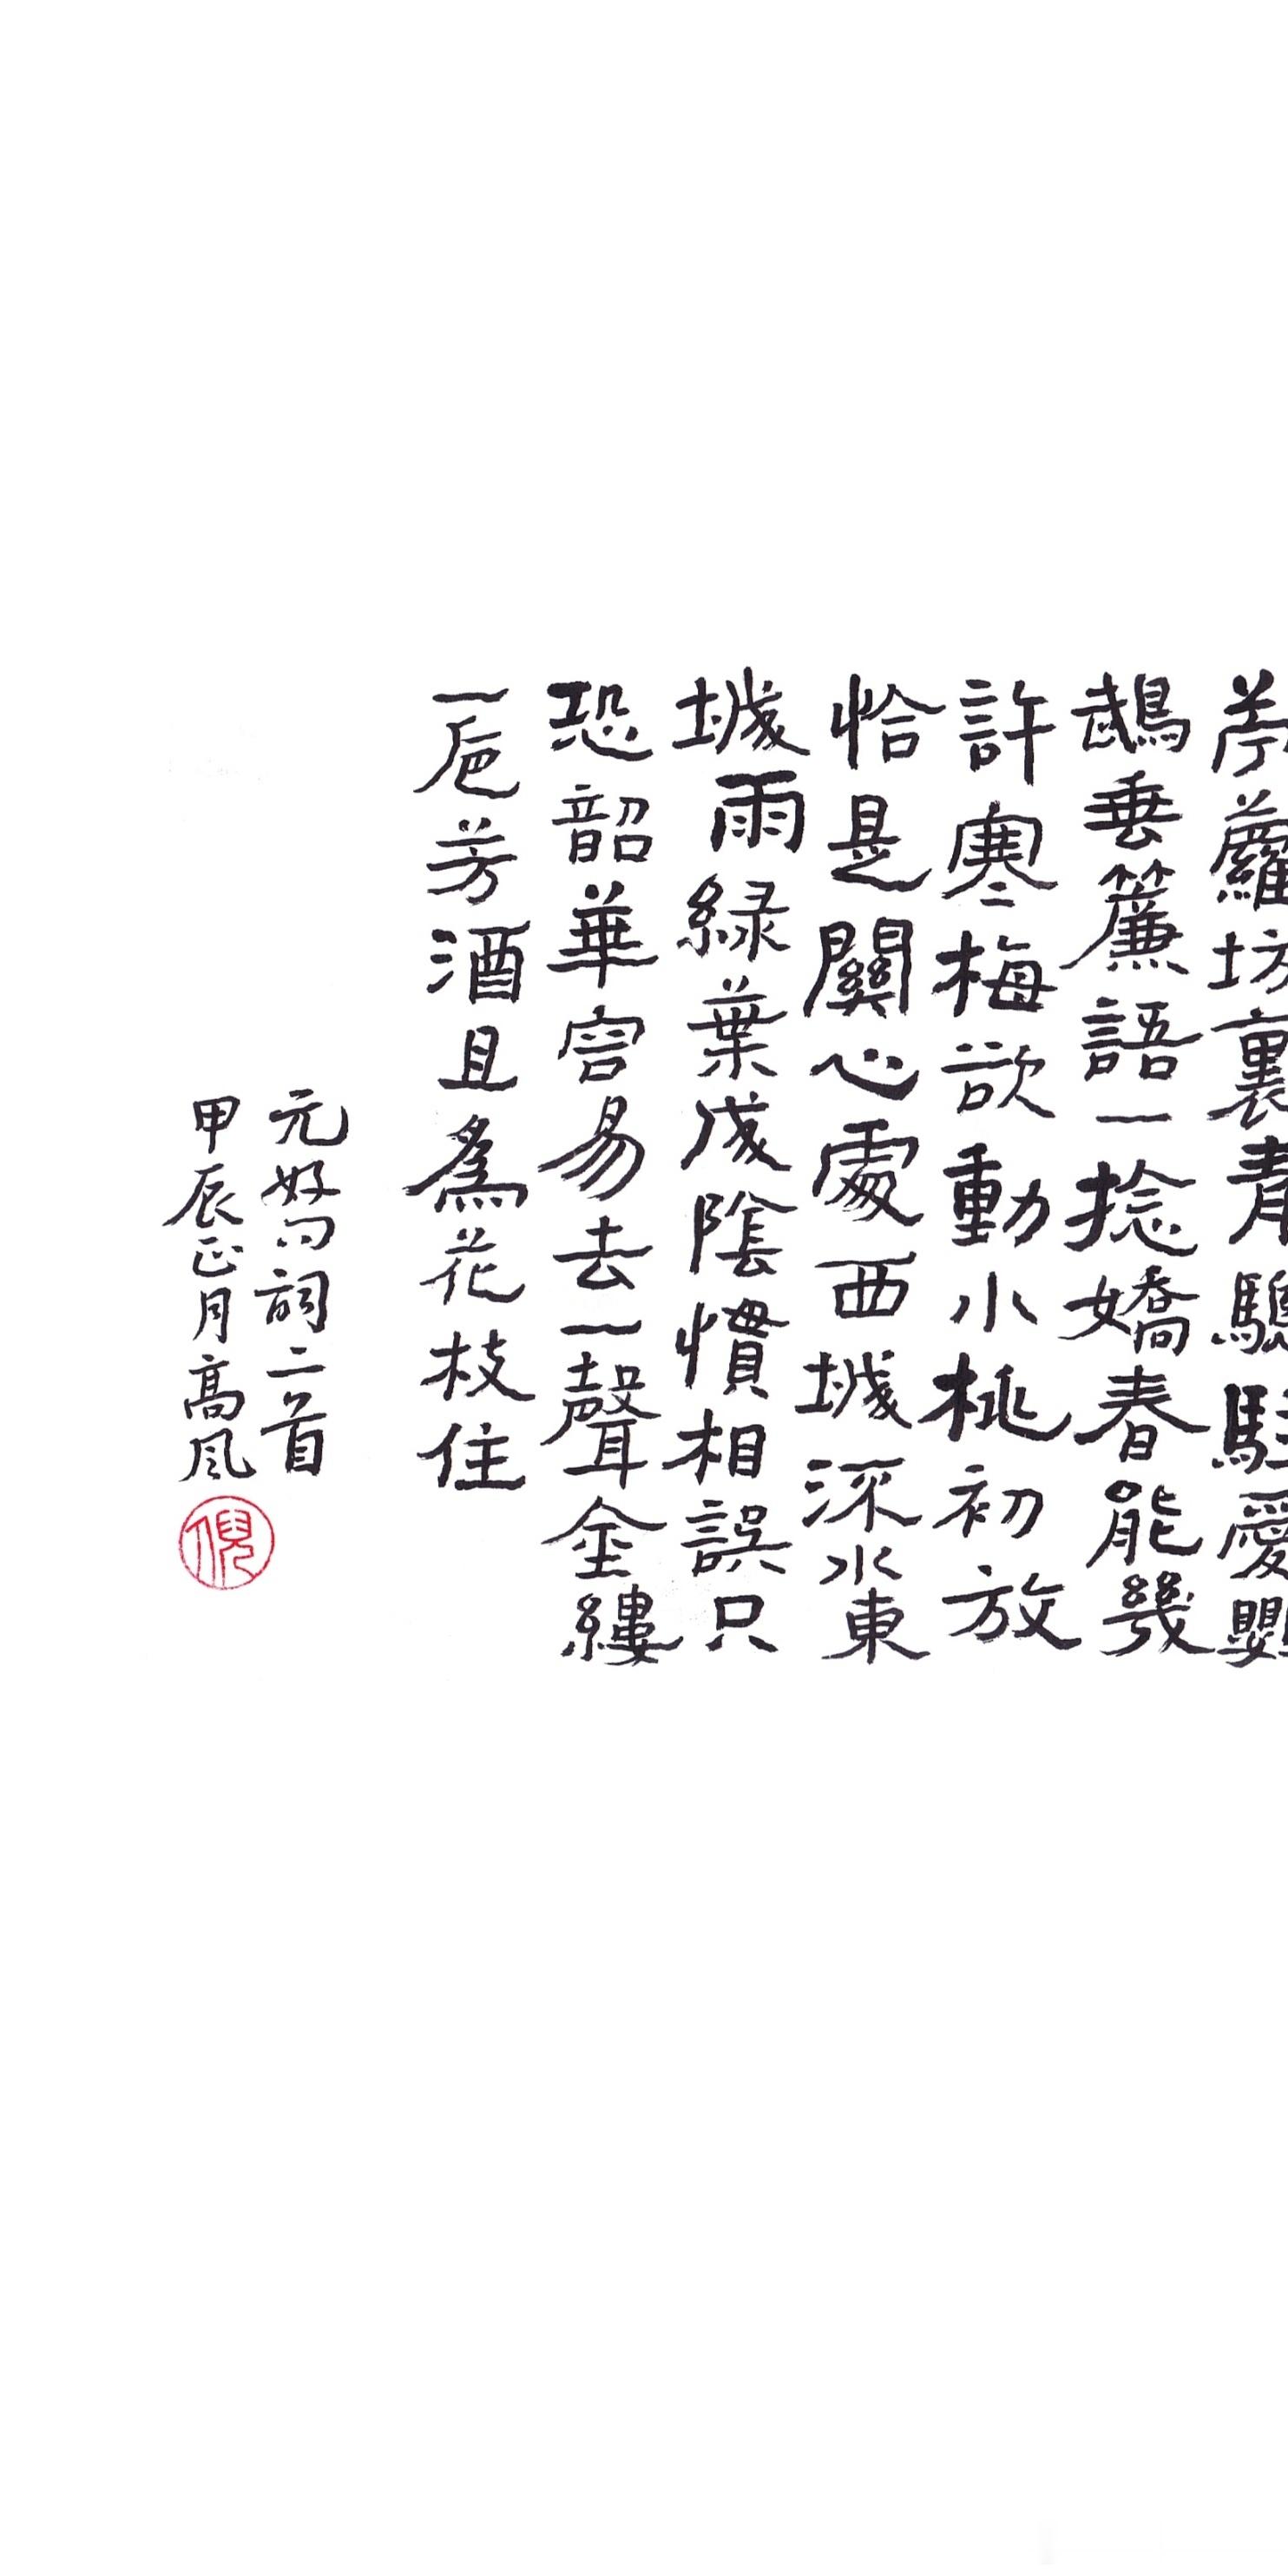 苧蘿坊裏青驄駐愛鸚
鵡垂簾語一捻嬌春能幾
許寒梅欲動小桃初放
恰是關心處西城深水東
城雨綠葉成陰慣相誤只
恐韶華容易去一聲金縷
一卮芳酒且為花枝住
元好问詞二首
甲辰正月高风
倪